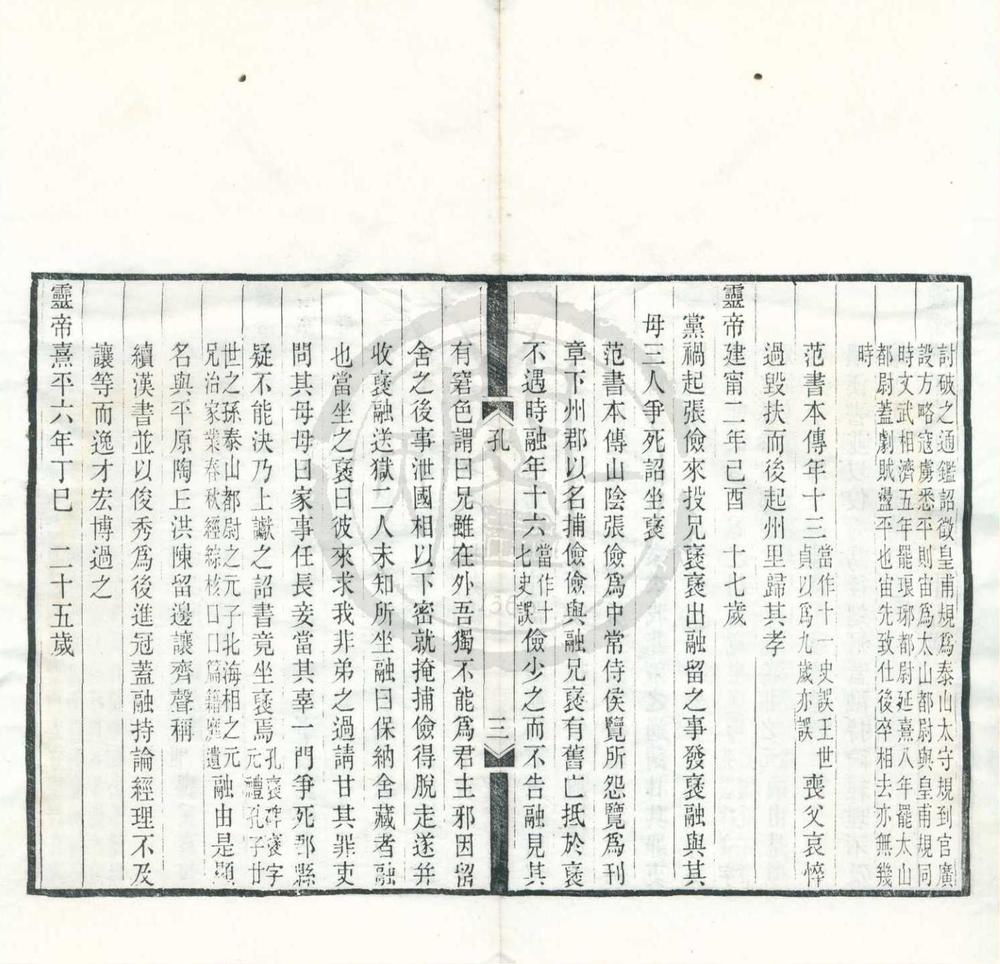 討破之通鑑詔徵皇甫規爲泰山太守規到官廣
設方略寇虜悉平則宙爲太山都尉與皇甫規同
時文武相濟五年罷琅邪都尉延熹八年罷太山
都尉蓋劇賊盪平也宙先致仕後卒相去亦無幾
時
范書本傳年十三當作十一史誤王世貞以爲九歲亦誤喪父哀悴
過毀扶而後起州里歸其孝
靈帝建甯二年己酉 十七歲
黨禍起張儉來投兄褒褒出融留之事發褒融與其
母三人爭死詔坐褒
范書本傳山陰張儉爲中常侍侯覽所怨覽爲刊
章下州郡以名捕儉儉與融兄褒有舊亡抵於褒
不遇時融年十六當作十七史誤儉少之而不告融見其
孔 三
有窘色謂曰兄雖在外吾獨不能爲君主邪因留
舍之後事泄國相以下密就掩捕儉得脫走遂幷
收褒融送獄二人未知所坐融曰保納舍藏者融
也當坐之褒曰彼來求我非弟之過請甘其罪吏
問其母母曰家事任長妾當其辜一門爭死郡縣
疑不能決乃上讞之詔書竟坐褒焉孔褒碑褒字元禮孔子廿
世之孫泰山都尉之元子北海相之元兄治家業春秋經綜核口口篇籍靡遺融由是顯
名與平原陶丘洪陳留邊讓齊聲稱
續漢書並以俊秀爲後進冠蓋融持論經理不及
讓等而逸才宏博過之
靈帝熹平六年丁巳 二十五歲